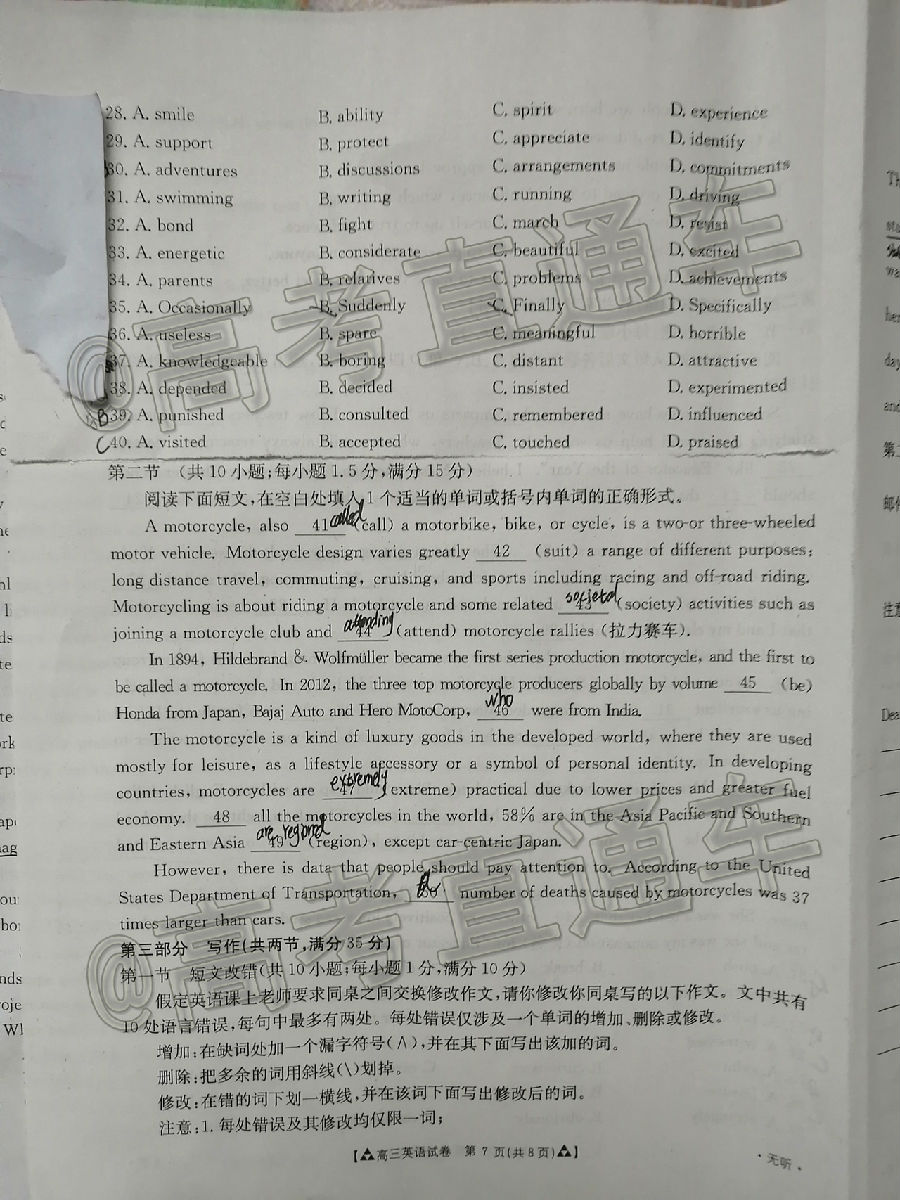 28. A. smile B. ability C. spirit D. experience
29. A. support B. protect C. appreciate D. identify
30. A. adventures B. discussions C. arrangements D. commitments
31. A. swimming B. writing C. running D. driving
32. A. bond B. fight C. march D. resist
33. A. energetic B. considerate C. beautiful D. excited
34. A. parents B. relatives C. problems D. achievements
35. A. Occasionally B. Suddenly C. Finally D. Specifically
36. A. useless B. spare C. meaningful D. horrible
37. A. knowledgeable B. boring C. distant D. attractive
38. A. depended B. decided C. insisted D. experimented
B 39. A. punished B. consulted C. remembered D. influenced
C 40. A. visited B. accepted C. touched D. praised
第二节 (共10小题;每小题1.5分,满分15分)
阅读下面短文,在空白处填入1个适当的单词或括号内单词的正确形式。
A motorcycle, also 41 called (call) a motorbike, bike, or cycle, is a two-or three-wheeled
motor vehicle. Motorcycle design varies greatly 42 (suit) a range of different purposes:
long distance travel, commuting, cruising, and sports including racing and off-road riding.
Motorcycling is about riding a motorcycle and some related 43 societal (society) activities such as
joining a motorcycle club and 44 attending (attend) motorcycle rallies (拉力赛车).
In 1894, Hildebrand & Wolfmüller became the first series production motorcycle, and the first to
be called a motorcycle. In 2012, the three top motorcycle producers globally by volume 45 (be)
Honda from Japan, Bajaj Auto and Hero MotoCorp, 46 who were from India.
The motorcycle is a kind of luxury goods in the developed world, where they are used
mostly for leisure, as a lifestyle accessory or a symbol of personal identity. In developing
countries, motorcycles are 47 extremely (extreme) practical due to lower prices and greater fuel
economy. 48 all the motorcycles in the world, 58% are in the Asia Pacific and Southern
and Eastern Asia 49 are regional (region), except car-centric Japan.
However, there is data that people should pay attention to. According to the United
States Department of Transportation, 50 number of deaths caused by motorcycles was 37
times larger than cars.
第三部分 写作(共两节,满分35分)
第一节 短文改错(共10小题;每小题1分,满分10分)
假定英语课上老师要求同桌之间交换修改作文,请你修改你同桌写的以下作文。文中共有
10处语言错误,每句中最多有两处。每处错误仅涉及一个单词的增加、删除或修改。
增加:在缺词处加一个漏字符号(∧),并在其下面写出该加的词。
删除:把多余的词用斜线(\)划掉。
修改:在错的词下划一横线,并在该词下面写出修改后的词。
注意:1. 每处错误及其修改均仅限一词;
【高三英语试卷 第7页(共8页)】
·无听·
@高考直通车
@高考直通车